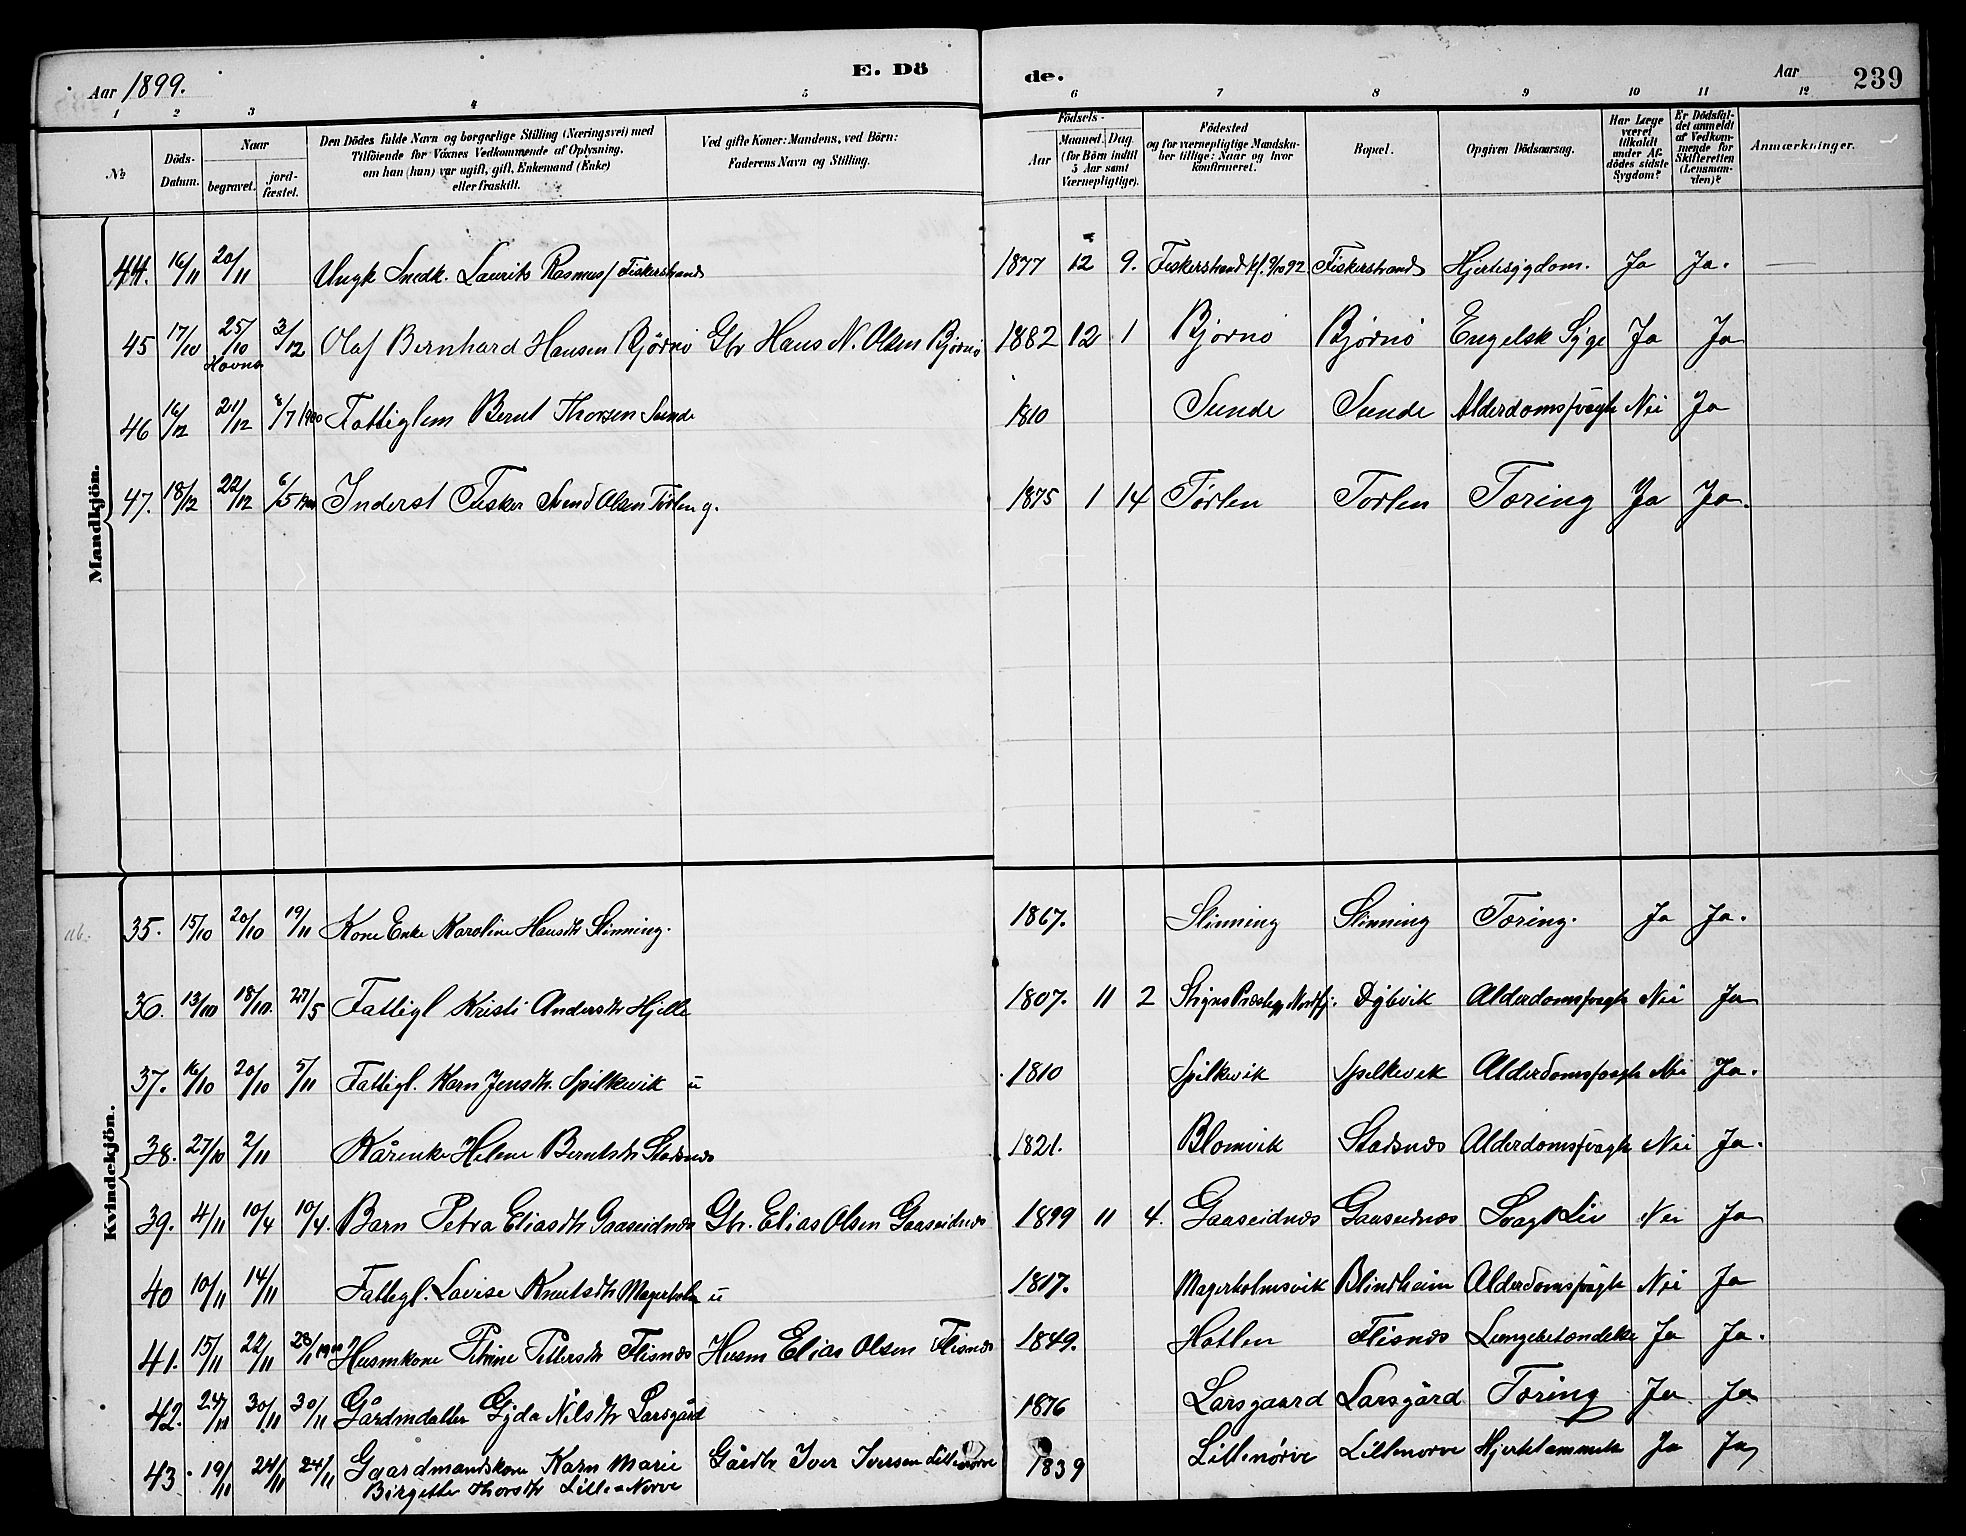 Aar 1899. E. Dö de. Aar 239
1 2 3 4 5 6 7 8 9 10 11 12
№ Döds-Datum. Naar begravet. jord-fæstet. Den Dödes fulde Navn og borgerlige Stilling (Næringsvei) med Tilföiende for Voxnes Vedkommende af Oplysning, om han (hun) var ugift, gift, Enkemand (Enke) eller fraskilt. Ved gifte Koner: Mandens, ved Börn: Faderens Navn og Stilling. Födsels- Aar Maaned. Dag. (for Börn indtil 5 Aar samt Værnepligtige). Födested og for værnepligtige Mandskaber tillige: Naar og hvor konfirmeret. Bopæl. Opgiven Dödsaarsag. Har Læge været tilkaldt under Afdödes sidste Sygdom? Er Dödsfaldet anmeldt af Vedkommende for Skifteretten (Lensmanden)? Anmærkninger.
Mandkjön.
44. 16/11 20/11 Ungk Snedk. Laurits Rasmus/ Fiskerstrand 1877 12 9. Fiskerstrand kf. 9/10 92 Fiskerstrand Hjertesygdom. Ja Ja. —
45 17/10 25/10 Hovna 3/12 Olaf Bernhard Hansen Bjørnø Gbr Hans N. Olsen Bjørnø 1882 12 1 Bjørnø Bjørnø Engelsk Syge Ja Ja
46 16/12 21/12 8/7 1900 Fattiglem Bernt Thorsen Sunde 1810 Sunde Sunde Alderdomssvagh Nei Ja
47. 18/12 22/12 6/5 1900 Inderst Fisker Svend Olsen Tørlen g. 1875 1 14 Tørlen Torlen Tæring Ja Ja.
Kvindekjön.
35. 15/10 20/10 19/11 Kone Enke Karoline Hansdtr Slinning. 1867. Slinning Slinning Tæring. Ja Ja.
36. 13/10 18/10. 27/5 Fattigl Kristi Andersdtr Hjelle 1807. 11 2 Dybvik Alderdomssvagh Nei Ja
37. 16/10 20/10 5/11 Fattigl. Karn Jensdtr. Spilkevik u 1810 Spilkevik Spilkevik Alderdomssvagh Nei Ja.
38. 27/10 2/11 Kårenke Helene Berntsdtr Stadsnæs 1821. Blomvik Stadsnæs Alderdomssvagh Nei Ja.
39. 4/11 10/4 10/4. Barn Petra Eliasdtr Gaaseidnæs Gbr. Elias Olsen Gaaseidnæs 1899 11 4. Gaaseidnæs Gaaseidnæs Svagt Liv Nei Ja
40 10/11 14/11 Fattigl. Lovise Knutsdtr Magerholm u 1817. Magerholmsvik Blindheim Alderdomssvagh Nei Ja
41. 15/11 22/11 Husmkone Petrine Pettersdtr Flisnæs Husm Elias Olsen Flisnæs 1849. Hatlen Flisnæs Lungebetændelse Ja Ja.
42. 24/11 30/11 30/11 Gårdmdatter Gjda Nilsdtr Larsgård 1876 Larsgaard Larsgård Tæring Ja Ja
43. 19/11 24/11 24/11 Gaardmandskone Karn Marie Gårdbr Iver Iversen Lillenørve 1839 Lillenørve Lillenorve Hjertelammelse Ja Ja
Birgette Thorsdtr Lille-Nørve